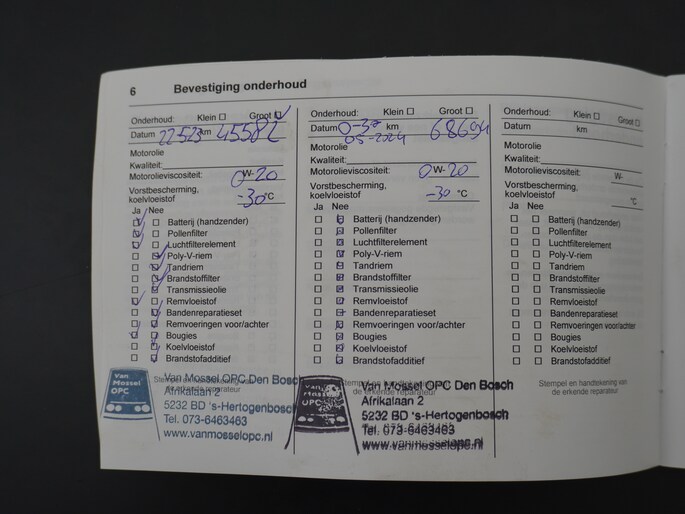 6 Bevestiging onderhoud
Onderhoud: Klein ☐ Groot ☑
Datum 22-523 km 45582
Motorolie
Kwaliteit:
Motorolieviscositeit: 0W-20
Vorstbescherming,
koelvloeistof -30 °C
Ja Nee
Batterij (handzender)
Pollenfilter
Luchtfilterelement
Poly-V-riem
Tandriem
Brandstoffilter
Transmissieolie
Remvloeistof
Bandenreparatieset
Remvoeringen voor/achter
Bougies
Koelvloeistof
Brandstofadditief
Stempel en handtekening van
de erkende reparateur
Van
Mossel
OPC
Van Mossel OPC Den Bosch
Afrikalaan 2
5232 BD 's-Hertogenbosch
Tel. 073-6463463
www.vanmosselopc.nl
Onderhoud: Klein ☐ Groot ☐
Datum km 68694
05-2024
Motorolie
Kwaliteit:
Motorolieviscositeit: 0W-20
Vorstbescherming,
koelvloeistof -30 °C
Ja Nee
Batterij (handzender)
Pollenfilter
Luchtfilterelement
Poly-V-riem
Tandriem
Brandstoffilter
Transmissieolie
Remvloeistof
Bandenreparatieset
Remvoeringen voor/achter
Bougies
Koelvloeistof
Brandstofadditief
Stempel en handtekening van
de erkende reparateur
Van
Mossel
OPC
Van Mossel OPC Den Bosch
Afrikalaan 2
5232 BD 's-Hertogenbosch
Tel. 073-6463463
www.vanmosselopc.nl
Onderhoud: Klein ☐ Groot ☐
Datum km
Motorolie
Kwaliteit:
Motorolieviscositeit: W-
Vorstbescherming,
koelvloeistof °C
Ja Nee
Batterij (handzender)
Pollenfilter
Luchtfilterelement
Poly-V-riem
Tandriem
Brandstoffilter
Transmissieolie
Remvloeistof
Bandenreparatieset
Remvoeringen voor/achter
Bougies
Koelvloeistof
Brandstofadditief
Stempel en handtekening van
de erkende reparateur